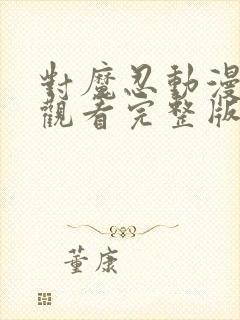 對魔忍動漫
觀看完整版
董康